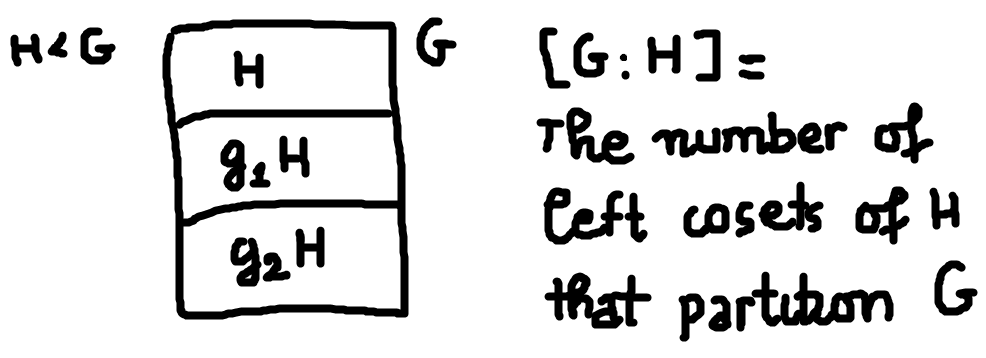 H < G
H
g₁H
g₂H
G
[G:H] =
The number of
left cosets of H
that partition G